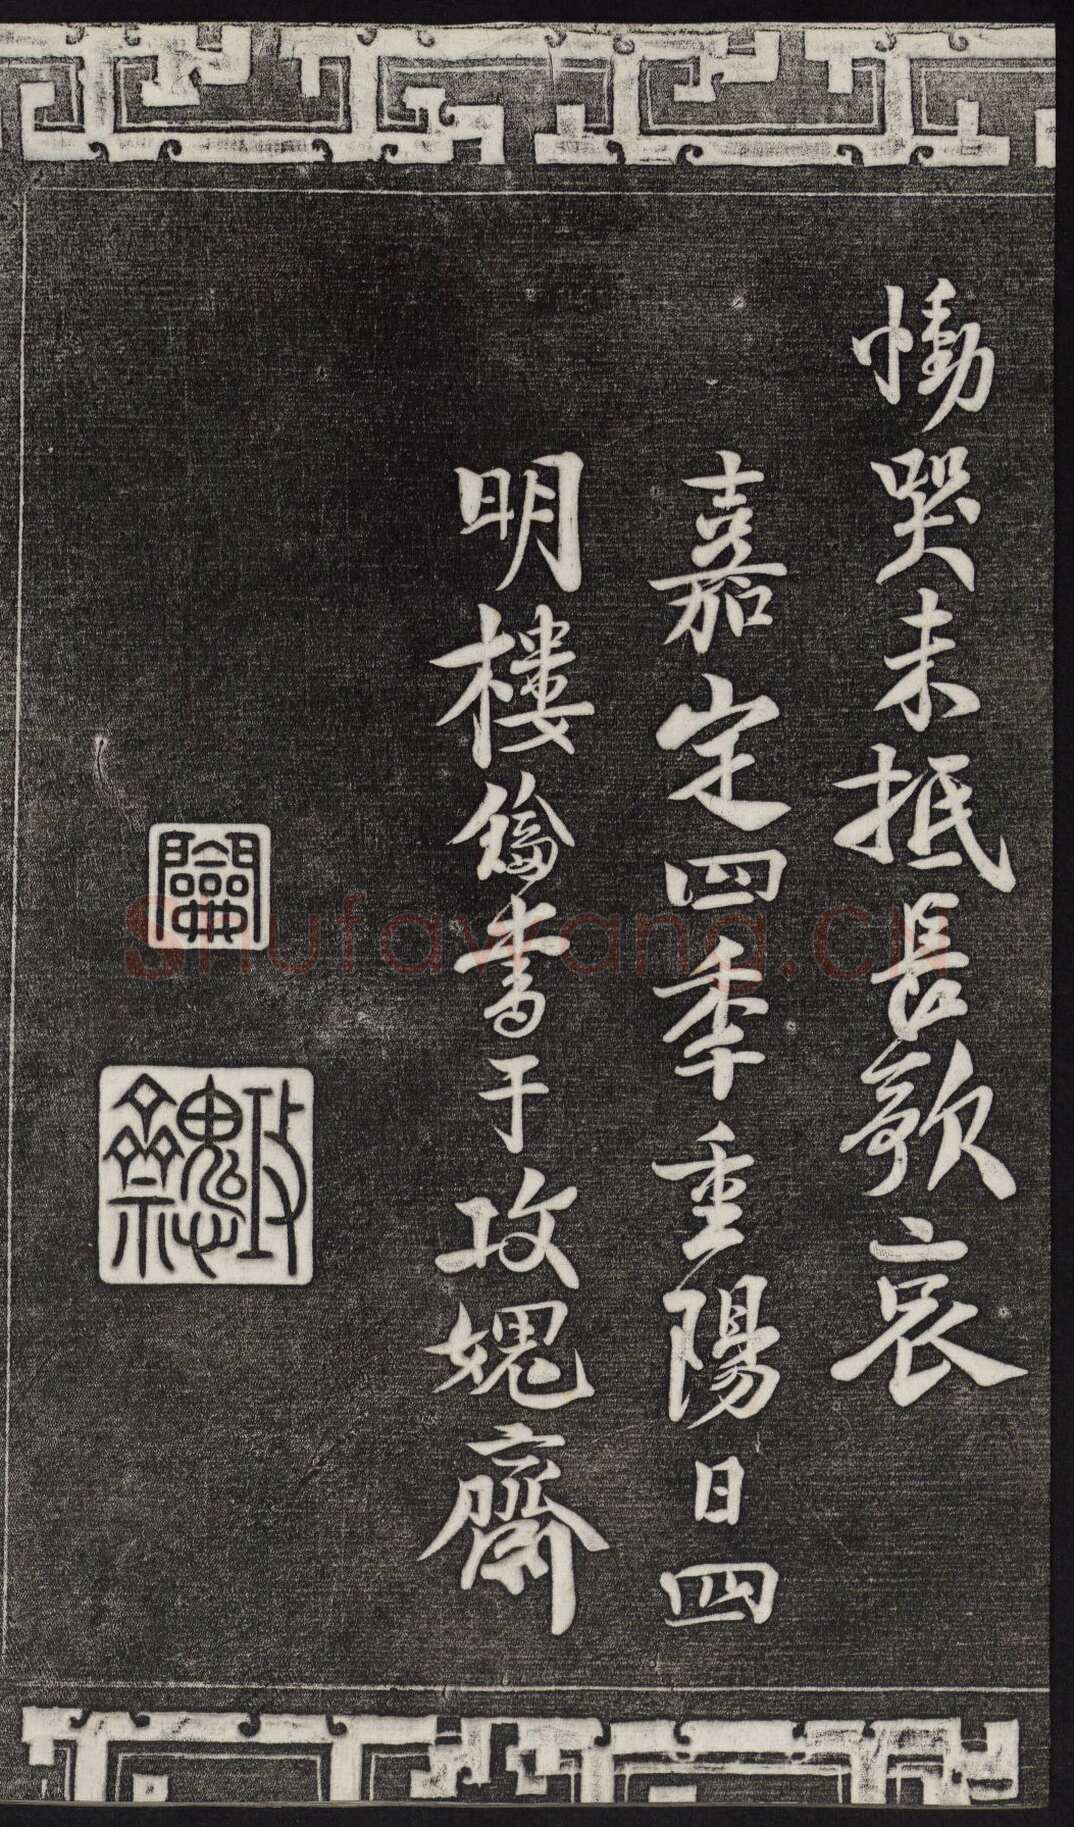 慟哭未抵長歌哀
嘉定四季重陽日四
明樓鑰書于攻媿齋
攻媿齋
Shufawang.CN